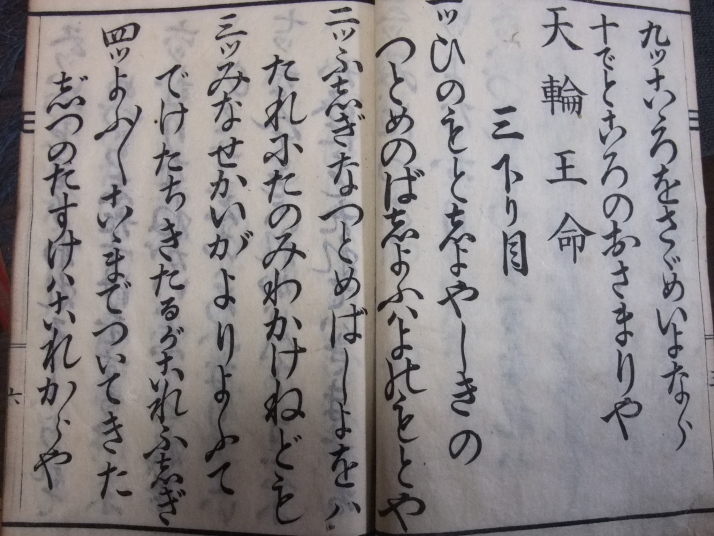 九ッこゝろをさだめいよなら
十デところのおさまりや
天輪王命
三下り目
一ッひのもと志よやしきの
つとめのば志よふハよのもとや
二ッふ志ぎなつとめばしよをハ
たれにたのみわかけねども
三ッみなせかいがよりよふて
でけたちきたるがこれふ志ぎ
四ッよふ〱こゝまでついてきた
志゛つのたすけハこれからや
六